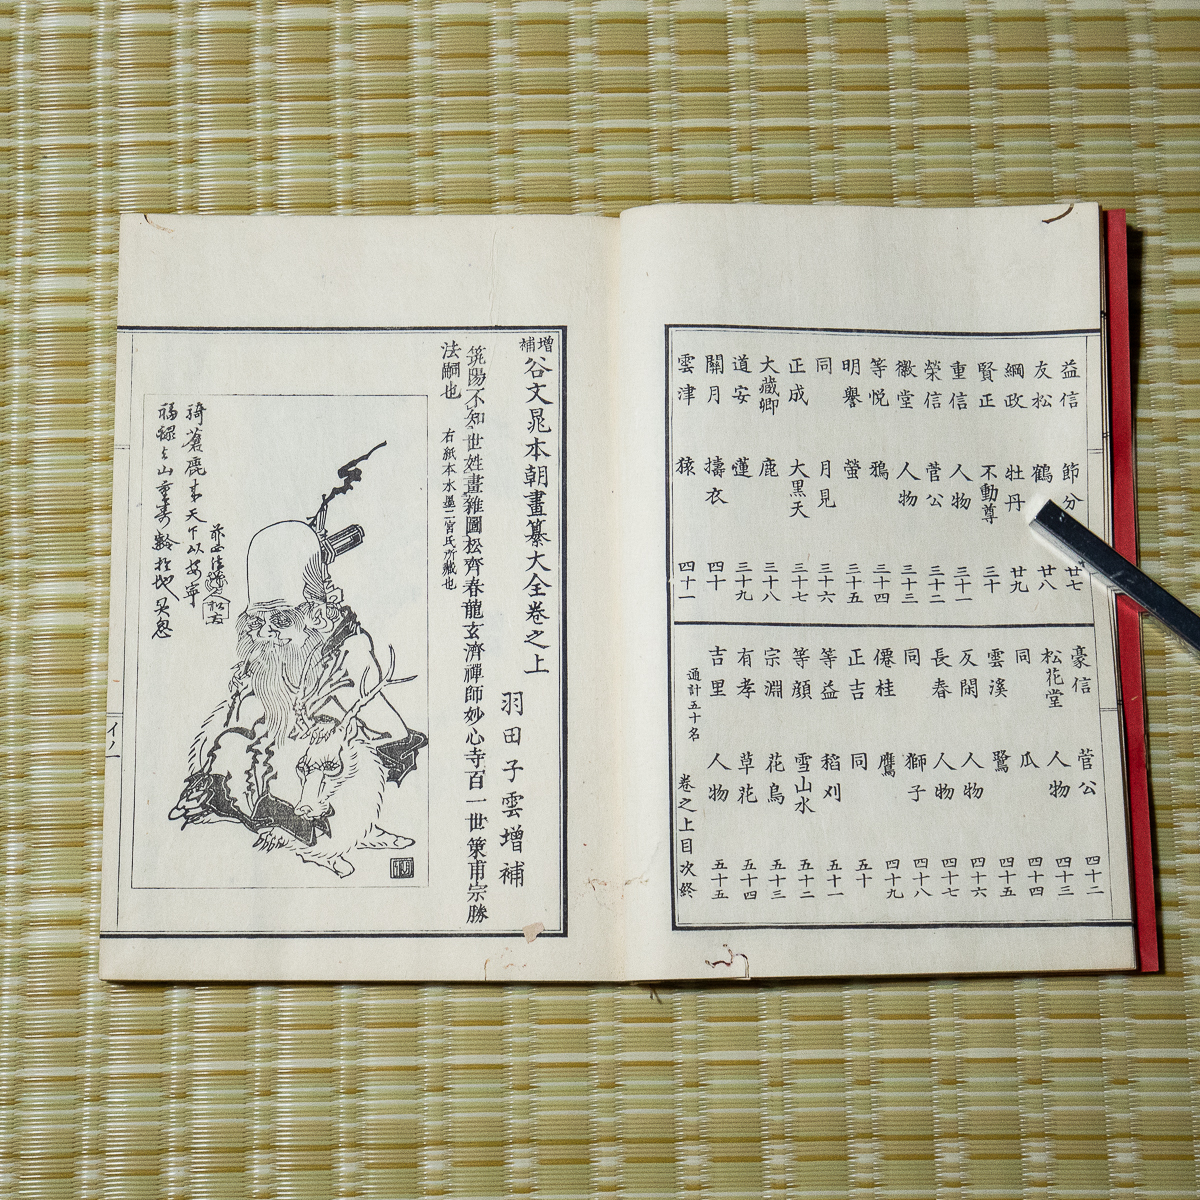 益信 節分 廿七
友松 鶴 廿八
綱政 牡丹 廿九
賢正 不動尊 三十
重信 人物 三十一
榮信 菅公 三十二
徽堂 人物 三十三
等悦 鴉 三十四
明譽 螢 三十五
同 月見 三十六
正成 大黒天 三十七
大藏卿 鹿 三十八
道安 蓮 三十九
關月 擣衣 四十
雲津 猿 四十一
豪信 菅公 四十二
松花堂 人物 四十三
同 瓜 四十四
雲溪 鷺 四十五
友閑 人物 四十六
長春 人物 四十七
同 獅子 四十八
僊桂 鷹 四十九
正吉 同 五十
等益 稻刈 五十一
等顔 雪山水 五十二
宗淵 花鳥 五十三
有孝 草花 五十四
吉里 人物 五十五
通計五十名
卷之上目次終
增補 谷文晁本朝畫纂大全卷之上
羽田子雲增補
筑陽不知世姓畫雜圖松齊春龍玄濟禪師妙心寺百一世策甫宗勝
法嗣也 右紙本水墨二宮氏所藏也
騎蒼鹿来天下以安寧
福禄之山重寿齢松地
イノ一